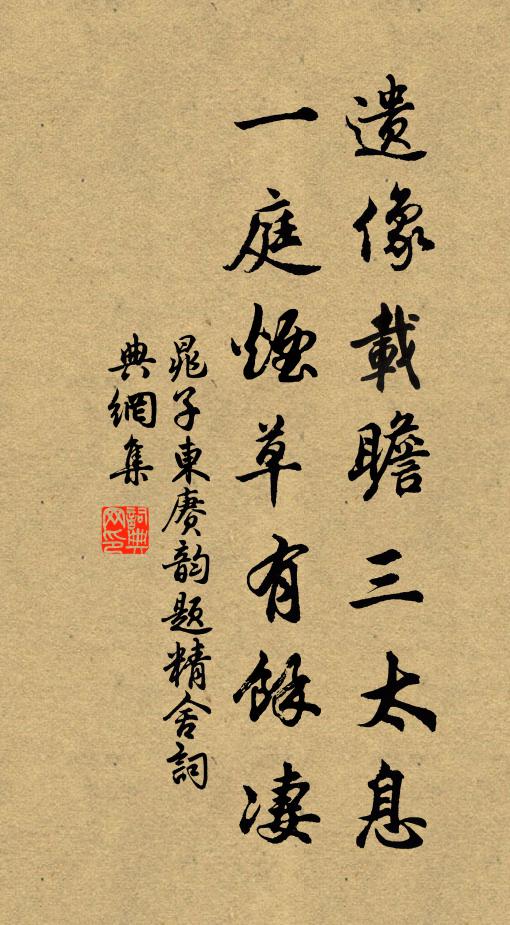 遺像載瞻三太息
一庭煙草有餘凄
晁子東賡韵題精舍詞
典網集
詞典
网印